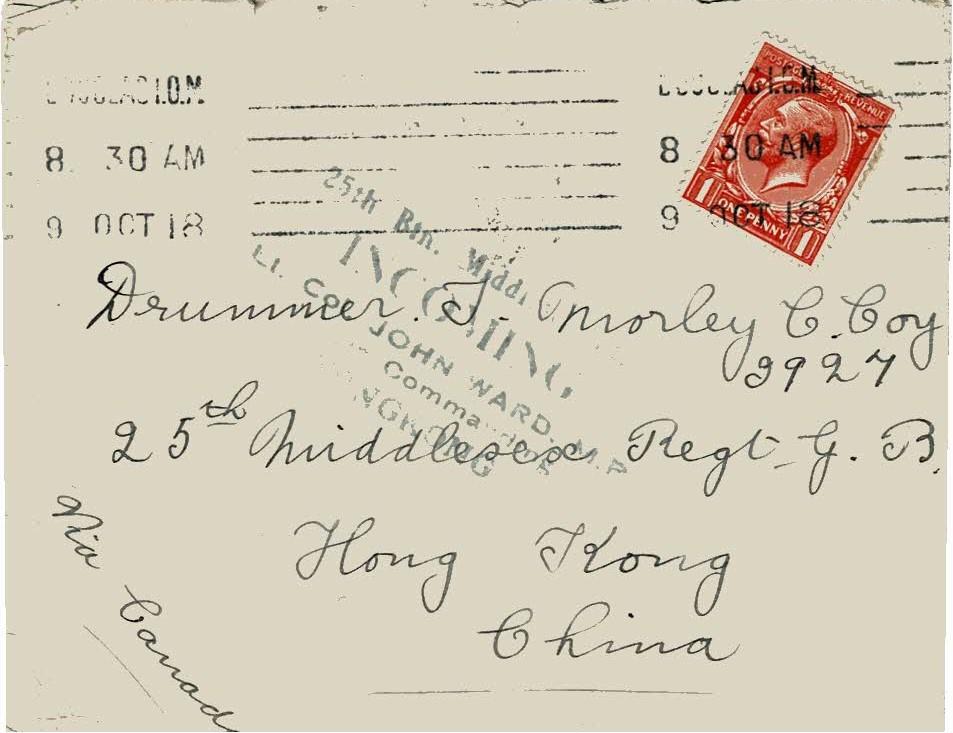 DOUGLAS I.O.M.
8. 30 AM
9 OCT 18
DOUGLAS I.O.M.
8 30 AM
9 OCT 18
POSTAGE REVENUE
1 ONE PENNY 1
25th Btn. Midd
Lt. Col. JOHN WARD. M.P
Drummer. J. Morley C. Coy
3927
25th Middlesex Regt G. B.
Hong Kong
China
Via Canada